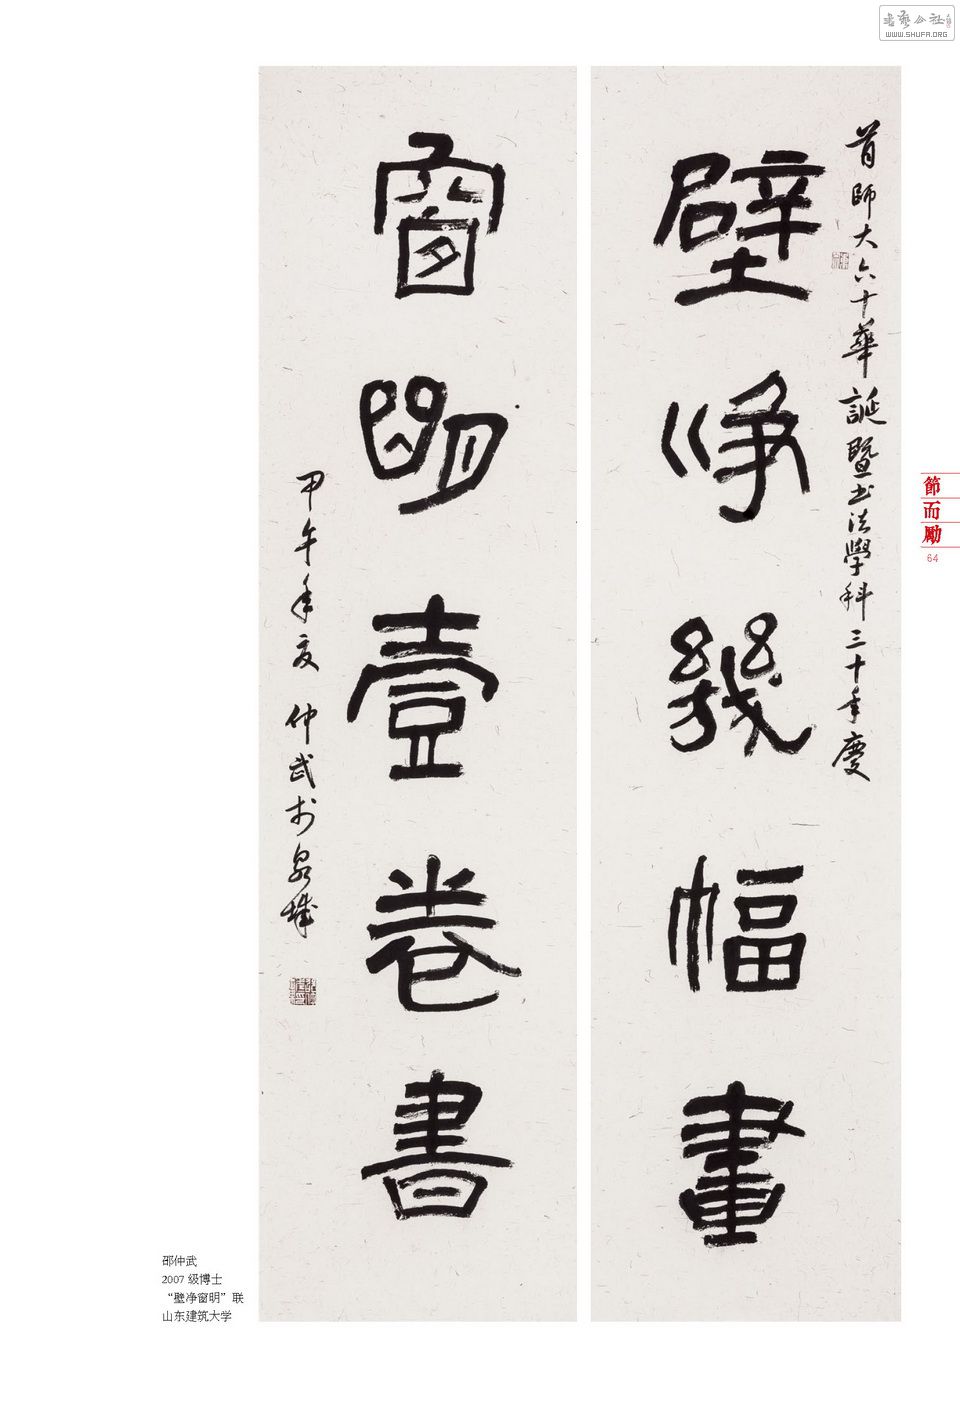 書藝公社
WWW.SHUFA.ORG
首師大六十華誕暨书法學科三十年慶
壁淨幾幅畫
窗明壹卷書
甲午年夏 仲武於泉城
節而勵
64
邵仲武
2007 级博士
“壁净窗明”联
山东建筑大学